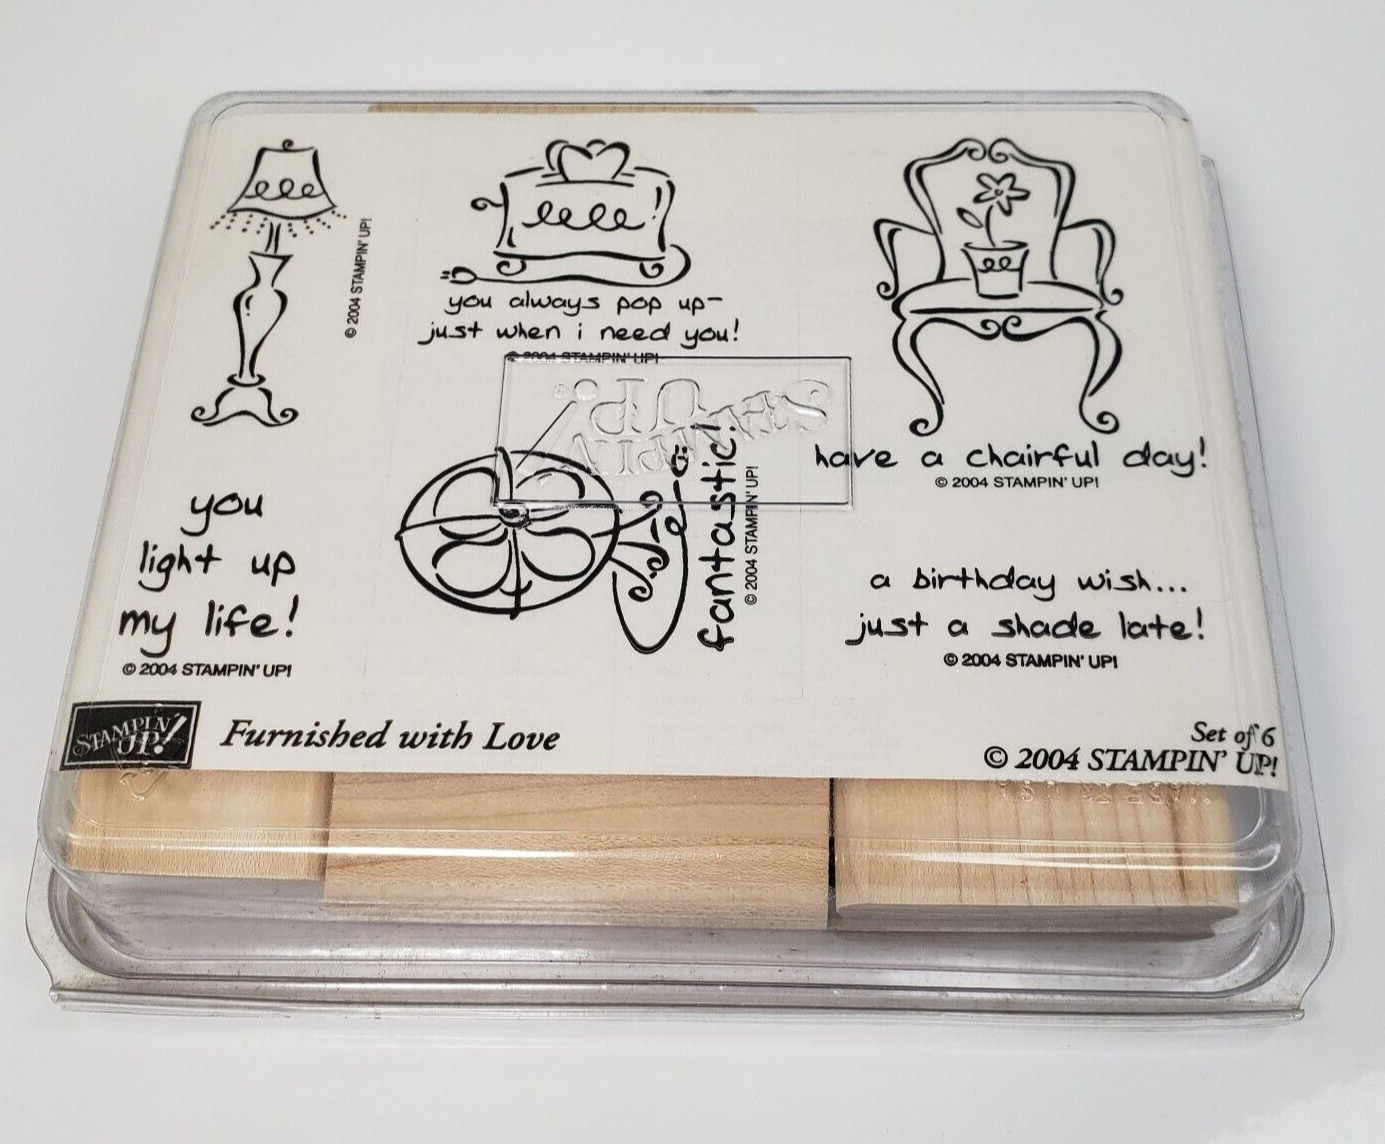 © 2004 STAMPIN' UP!
you always pop up-
just when i need you!
© 2004 STAMPIN' UP!
have a chairful day!
© 2004 STAMPIN' UP!
STAMPIN' UP!
you
light up
my life!
© 2004 STAMPIN' UP!
fantastic!
© 2004 STAMPIN' UP!
a birthday wish...
just a shade late!
© 2004 STAMPIN' UP!
STAMPIN'
UP!
Furnished with Love
Set of 6
© 2004 STAMPIN' UP!